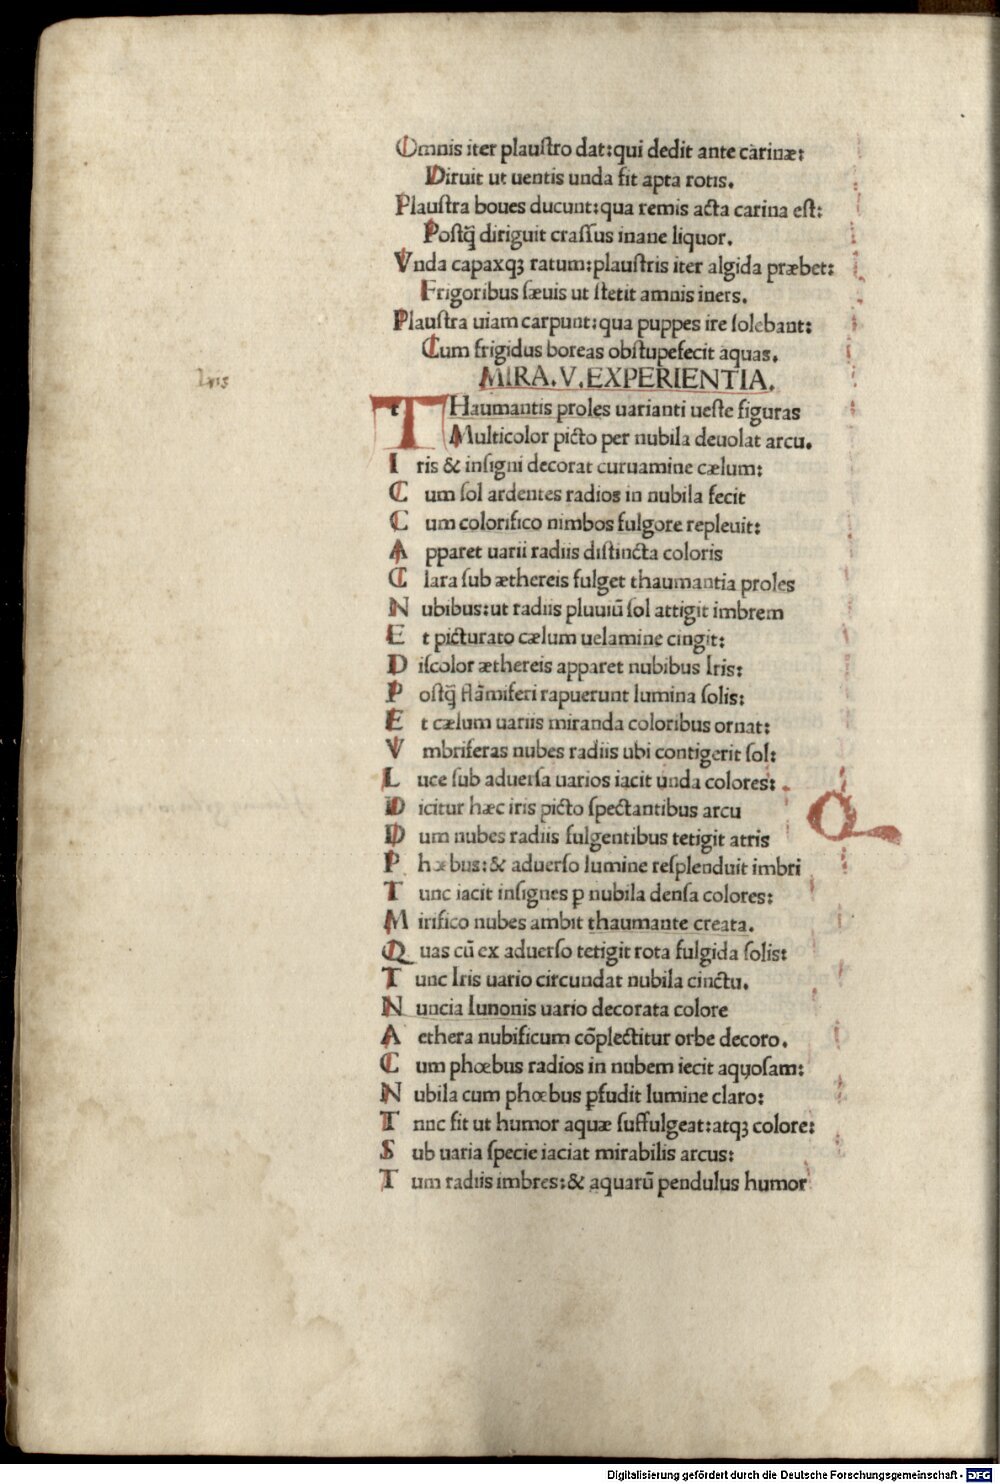 Omnis iter plaustro dat:qui dedit ante carinæ:
Diruit ut uentis unda fit apta rotis.
Plaustra boues ducunt:qua remis acta carina est:
Postq̃ diriguit crassus inane liquor.
Vnda capaxqꝫ ratum:plaustris iter algida præbet:
Frigoribus sæuis ut stetit amnis iners.
Plaustra uiam carpunt:qua puppes ire solebant:
Cum frigidus boreas obstupefecit aquas.
MIRA.V.EXPERIENTIA.
Iris
THaumantis proles uarianti ueste figuras
Multicolor picto per nubila deuolat arcu.
I ris & insigni decorat curuamine cælum:
C um sol ardentes radios in nubila fecit
C um colorifico nimbos fulgore repleuit:
A pparet uarii radiis distincta coloris
C lara sub æthereis fulget thaumantia proles
N ubibus:ut radiis pluuiũ sol attigit imbrem
E t picturato cælum uelamine cingit:
D iscolor æthereis apparet nubibus Iris:
P ostq̃ flãmiferi rapuerunt lumina solis:
E t cælum uariis miranda coloribus ornat:
V mbriferas nubes radiis ubi contigerit sol:
L uce sub aduersa uarios iacit unda colores:
D icitur hæc iris picto spectantibus arcu
D um nubes radiis fulgentibus tetigit atris
P hœbus:& aduerso lumine resplenduit imbri
T unc iacit insignes ꝑ nubila densa colores:
M irifico nubes ambit thaumante creata.
Q uas cũ ex aduerso tetigit rota fulgida solis:
T unc Iris uario circundat nubila cinctu.
N uncia Iunonis uario decorata colore
A ethera nubificum cõplectitur orbe decoro.
C um phœbus radios in nubem iecit aquosam:
N ubila cum phœbus ꝑfudit lumine claro:
T nnc fit ut humor aquæ suffulgeat:atqꝫ colore:
S ub uaria specie iaciat mirabilis arcus:
T um radiis imbres:& aquarũ pendulus humor
Digitalisierung gefördert durch die Deutsche Forschungsgemeinschaft - DFG